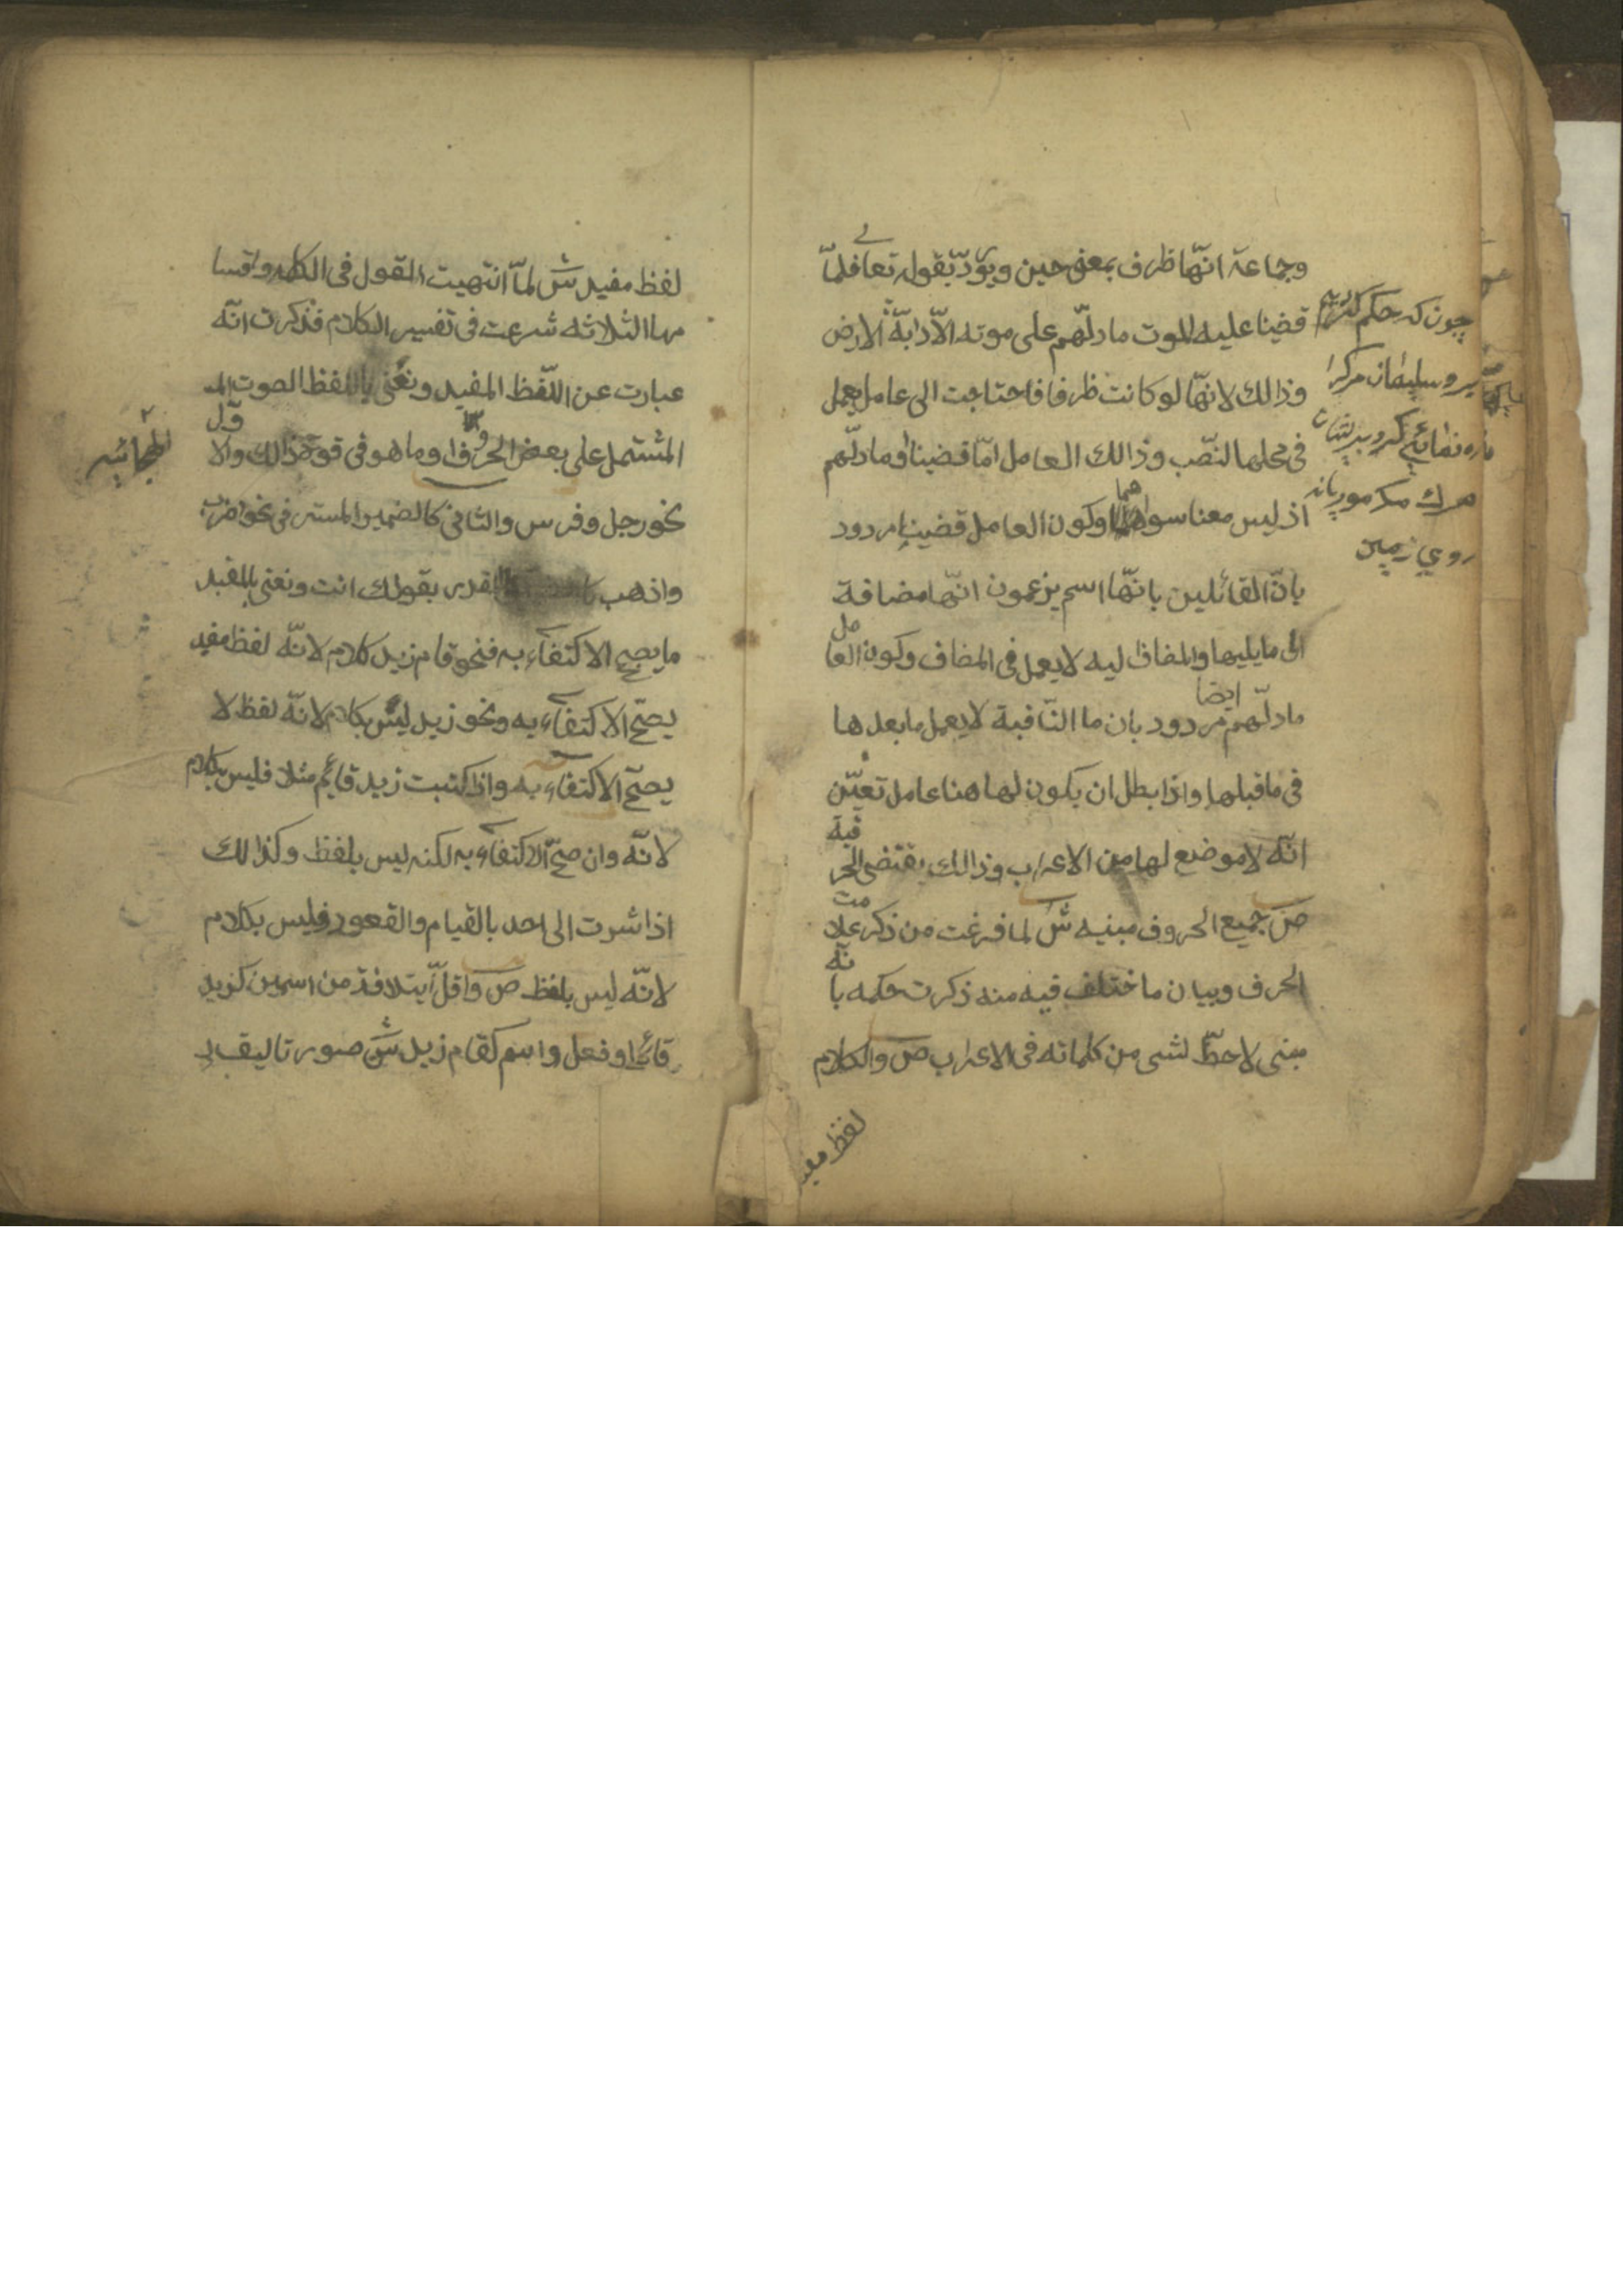 وجماعة انّها ظرف بمعنى حين ويردّ بقوله تعالى فلمّا
قضينا عليه الموت ما دلّهم على موته الّا دابّة الارض
وذالك لانّها لو كانت ظرفا فاحتاجت الى عامل يعمل
فى محلها النّصب وذالك العامل امّا قضينا او ما دلّهم
اذ ليس معنا سواهما وكون العامل قضينا مردود
بانّ القائلين بانّها اسم يزعمون انّها مضافة
الى ما يليها والمضاف ليه لا يعمل فى المضاف وكون العامل
ما دلّهم مردود ايضا بان ما النّافية لا يعمل ما بعدها
فى ما قبلها واذا بطل ان يكون لها هنا عامل تعيّن
انّه لا موضع لها من الاعراب وذالك يقتضى الحرفية
ص جميع الحروف مبنيه ش لما فرغت من ذكر علامت
الحرف وبيان ما ختلف فيه منه ذكرت حكمه بانّه
مبنى لا حظّ لشى من كلماته فى الاعراب ص والكلام
لفظ مفيد
چون كه حكم كرديم
بر وسليمان مرك را
نمائي كرد بديشان
مرك مكر موريانه
روي زمين
لفظ مفيد ش لمّا انتهيت القول فى الكلمه واقسا
مها الثلاثه شرعت فى تفسير الكلام فذكرت انّه
عبارت عن اللّفظ المفيد ونعنى باللفظ الصوت
المشتمل على بعض الحروف او ما هو فى قوة ذالك والاوّل
نحو رجل وفرس والثانى كالضمير المستر فى نحو اضرب
واذهب المقدر بقولك انت ونعنى بالمفيد
ما يصح الاكتفاء به فنحو قام زيد كلام لانّه لفظ مفيد
يصحّ الاكتفاء به ونحو زيد ليس بكلام لانّه لفظ لا
يصحّ الاكتفاء به واذا كتبت زيد قائم مثلا فليس بكلام
لانّه وان صحّ الاكتفاء به لكنه ليس بلفظ وكذالك
اذا شرت الى احد بالقيام والقعود فليس بكلام
لانّه ليس بلفظ ص واقلّ ايتلافه من اسمين كزيد
قائم او فعل واسم كقام زيد ش صور تاليف